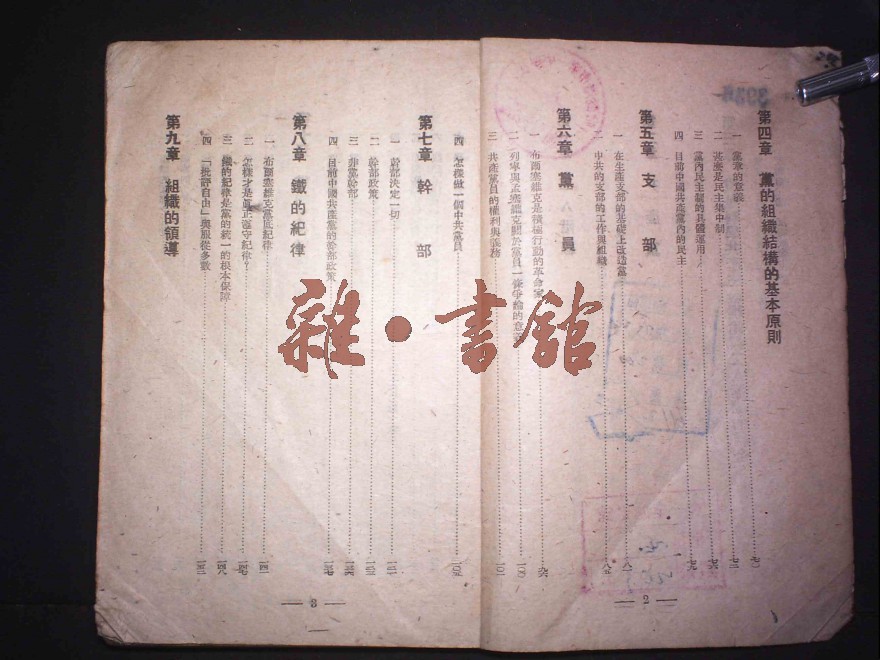 第四章 黨的組織結構的基本原則
一 黨章的意義……七〇
二 甚麼是民主集中制……七二
三 黨內民主制的具體運用……七六
四 目前中國共產黨內的民主……七九
第五章 支部
一 在生產支部的基礎上改造黨……八一
二 中共的支部的工作與組織……八五
第六章 黨員
一 布爾塞維克是積極行動的革命家……九六
二 列寧與孟塞維克關於黨員一條爭論的意義……一〇〇
三 共產黨員的權利與義務……一〇一
— 2 —
四 怎樣做一個中共黨員……一〇九
第七章 幹部
一 幹部決定一切
二 幹部政策
三 非黨幹部
四 目前中國共產黨的幹部政策
第八章 鐵的紀律
一 布爾塞維克黨底紀律……一四一
二 怎樣才是眞正遵守紀律?……一四七
三 鐵的紀律是黨的統一的根本保障……一四八
四 「批評自由」與服從多數……一五二
第九章 組織的領導
— 3 —
雜·書館